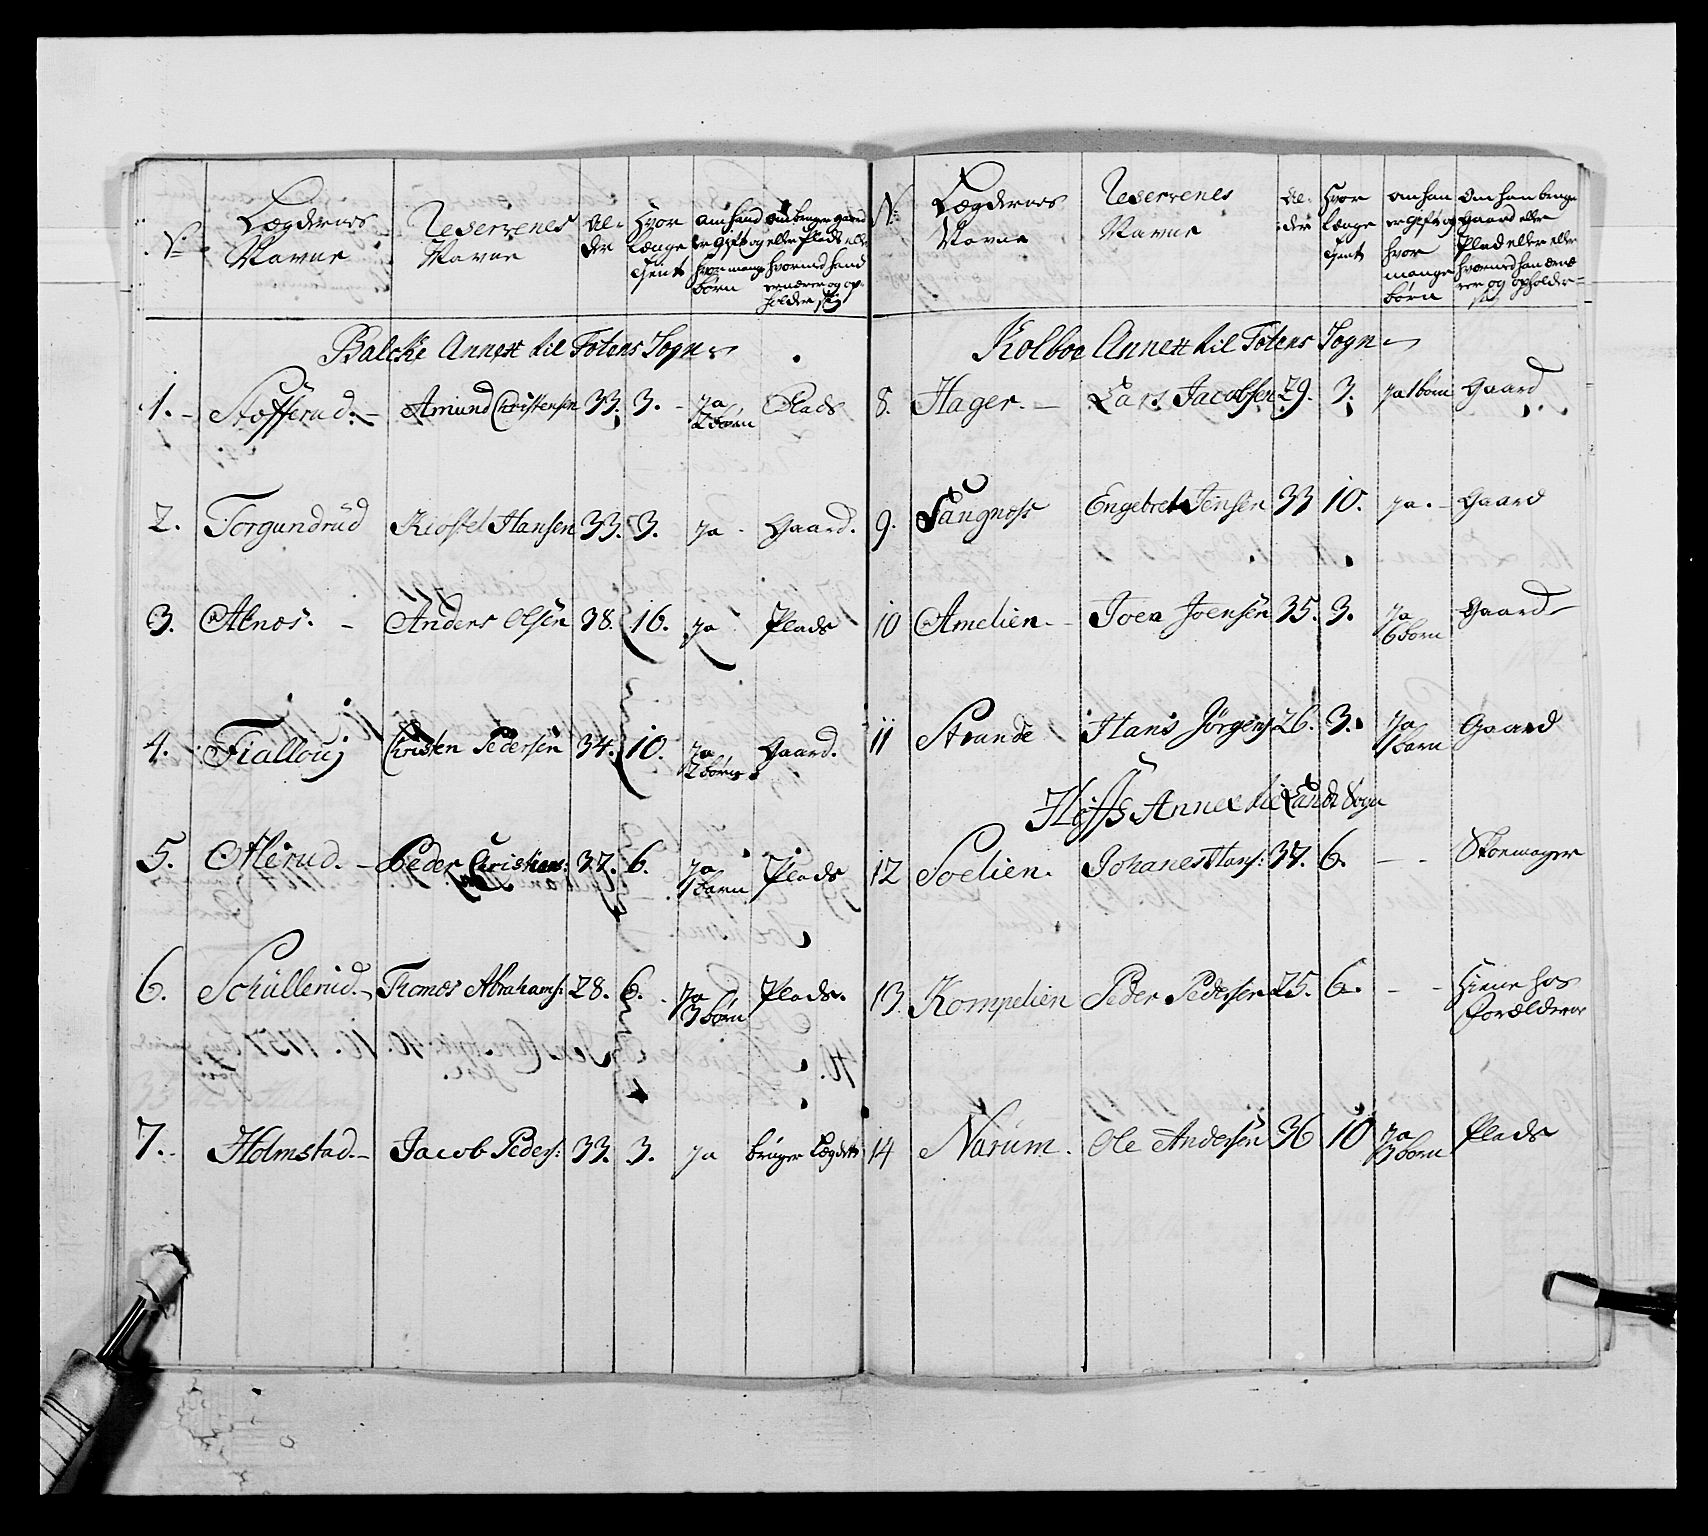 No
Lægdernes Navne
Reservenes Navne
Al-
der
Hvor længe tient
om hand er gift og hvor mange børn
om bruger gaard eller Plads eller hvormed hand ernærer og op-
holder sig
Balcke Annex til Totens Sogn
1. Stofferud. Amund Christensen 33. 3. ja 2 børn Plads
2. Torgundrud Kiøstel Hansen 33. 3. ja Gaard.
3. Alnæs. Anders Olsen 38. 16. ja Plads
4. Fiallouj Christen Pedersen 34. 10. ja 2 børn Gaard.
5. Alirud. Peder Christians: 37. 6. ja 1 barn Plads
6. Schüllerud. Thomes Abrahams: 28. 6. ja 3 børn Plads.
7. Holmstad. Jacob Peders: 33. 3. ja bruger Lægdet
No
Lægdernes Navne
Reservenes Navne
Al-
der
Hvor længe tient
om han er gift og hvor mange børn
Om han bruge Gaard eller Plads eller eller hvormed han ernæ-
rer og opholder sig
Kolboe Annex til Totens Sogn
8. Hager. Lars Jacobsen 29. 3. ja 1 barn Gaard
9. Sangnæss Engebret Jensen 33 10. ja. Gaard
10 Amelien. Joen Joensen 35. 3. ja 6 børn Gaard
11 Strande Hans Jørgens 26. 3. ja 1 barn Gaard
Hoffs Annex til Lands Sogn
12 Soelien. Johanes Hans: 37. 6. - - Skoemager
13. Kompelien Peder Pedersen 25. 6. - - Hiemme hos Forældrene
14 Narum. Ole Andersen 36 10 ja 3 børn Plads